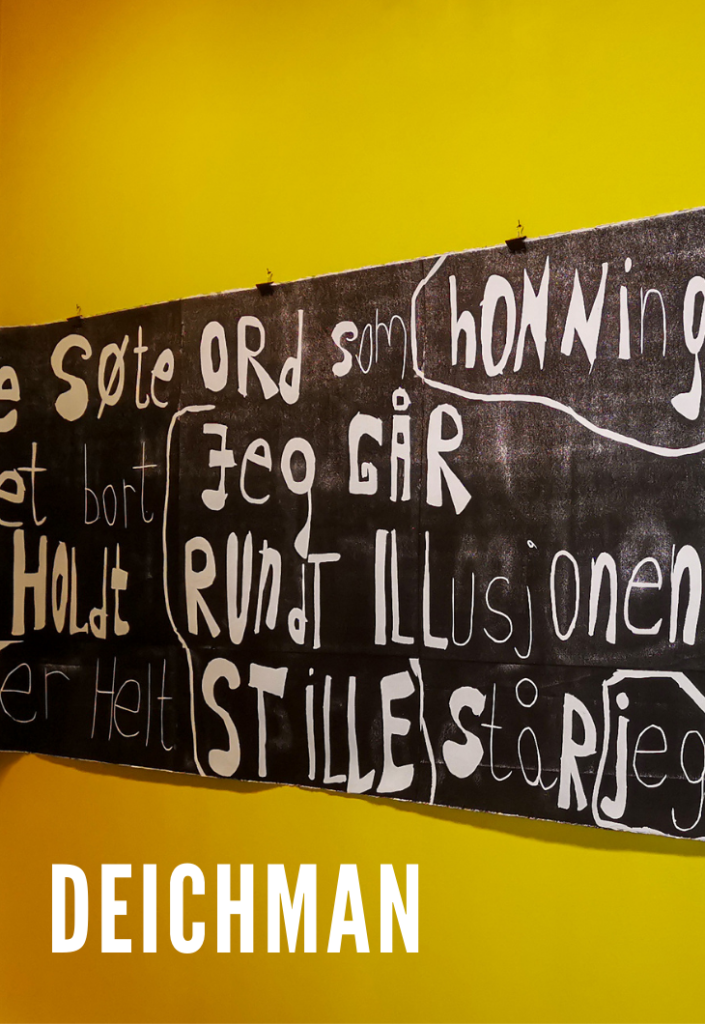 e SØte ORd som hONNing
et bort Jeg GÅR
HOLdt RUNdT ILLusjonen
er Helt STiLLE StåR jeg
DEICHMAN